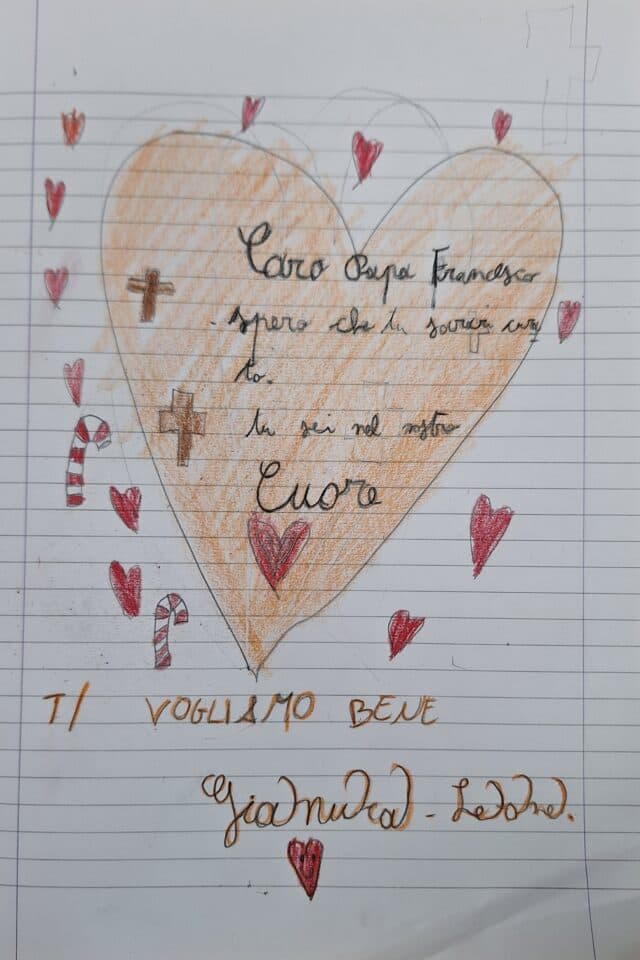 Caro Papa Francesco
spero che tu
to.
tu sei nel nostro
Cuore
TI VOGLIAMO BENE
Gianluca - Leone.